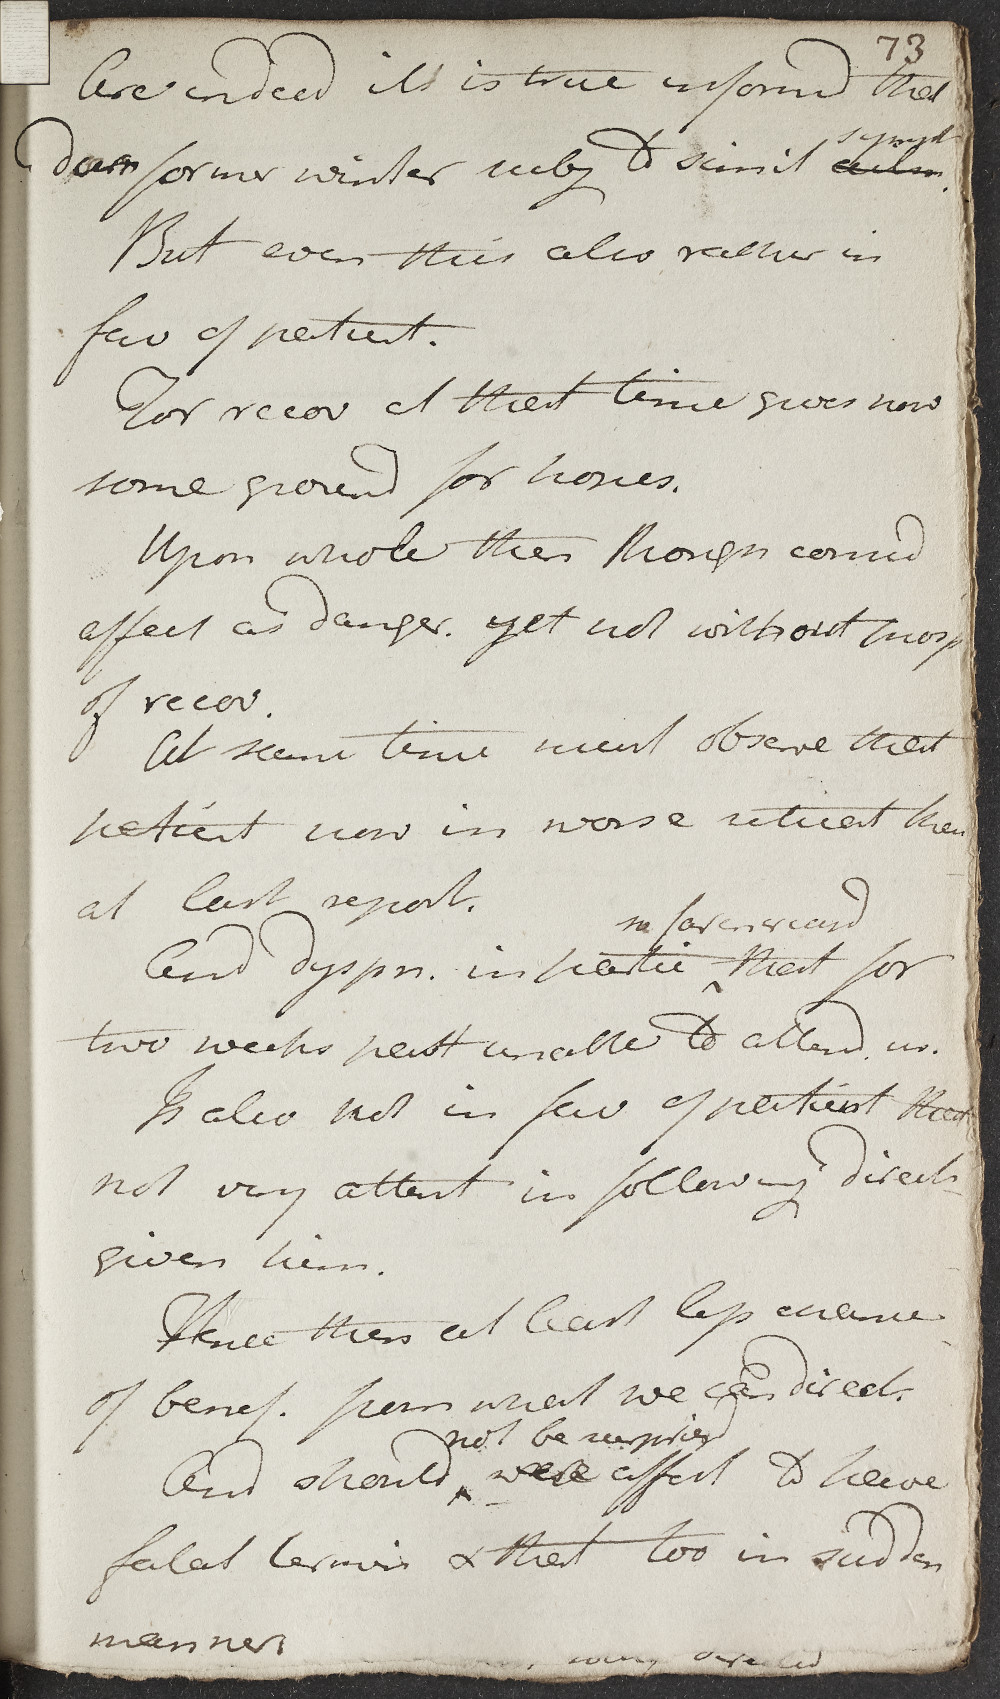 73
Are indeed it is true informd that
dur former winter subj to simil
sympt
But even this also rather in
fav of patient.
For recov at that time gives now
some ground for hopes.
Upon whole then though consid
affect as danger. yet not without prosp
of recov.
At same time must observe that
patient now in worse situat than
at last report.
in far increasd
And dyspn. in partic that for
two weeks past unable to attend us.
Is also not in fav of patient that
not very attent in following directs
given him.
Hence then at least less chance
of benef. from what we can direct.
not be surprisd
And should were affect to have
fatal termin & that too in sudden
manner